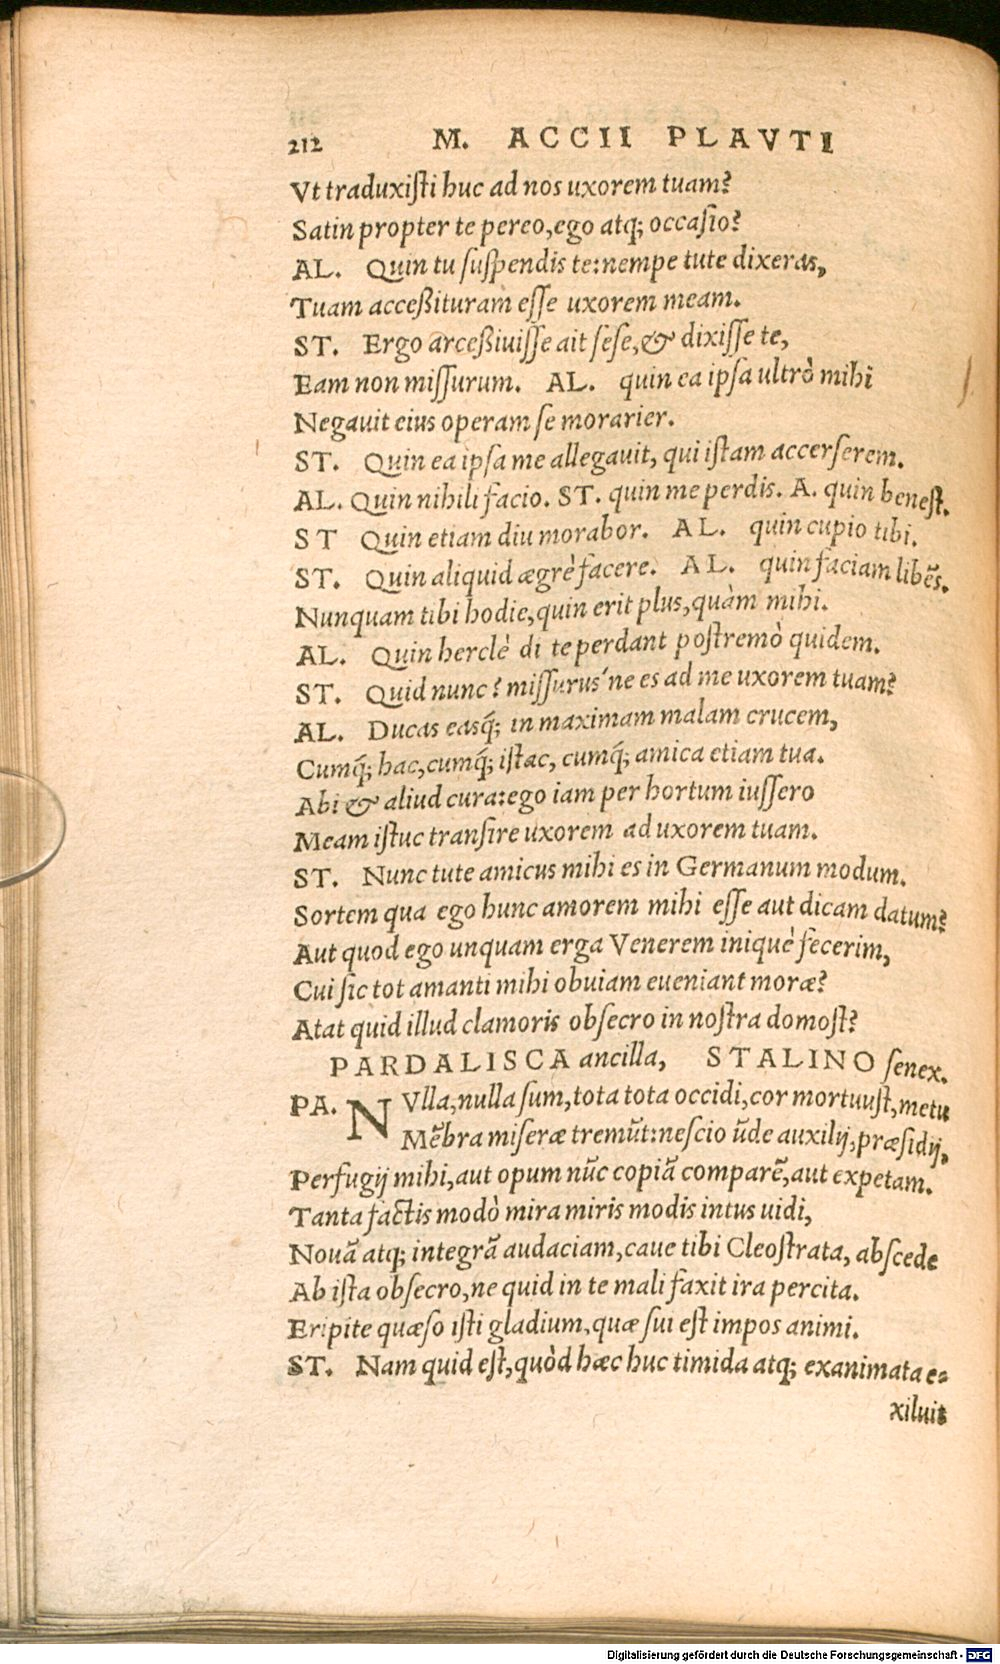 212 M. ACCII PLAVTI
Vt traduxiſti huc ad nos uxorem tuam?
Satin propter te pereo, ego atq; occaſio?
AL. Quin tu ſuſpendis te: nempe tute dixeras,
Tuam acceßituram eſſe uxorem meam.
ST. Ergo arceßiuiſſe ait ſeſe, & dixiſſe te,
Eam non miſſurum. AL. quin ea ipſa ultrò mihi
Negauit eius operam ſe morarier.
ST. Quin ea ipſa me allegauit, qui iſtam accerſerem.
AL. Quin nihili facio. ST. quin me perdis. A. quin beneſt.
ST Quin etiam diu morabor. AL. quin cupio tibi.
ST. Quin aliquid ægrè facere. AL. quin faciam libēs.
Nunquam tibi hodie, quin erit plus, quàm mihi.
AL. Quin herclè di te perdant poſtremò quidem.
ST. Quid nunc? miſſurus'ne es ad me uxorem tuam?
AL. Ducas easq́; in maximam malam crucem,
Cumq́; hac, cumq́; iſtac, cumq́; amica etiam tua.
Abi & aliud cura: ego iam per hortum iuſſero
Meam iſtuc tranſire uxorem ad uxorem tuam.
ST. Nunc tute amicus mihi es in Germanum modum.
Sortem qua ego hunc amorem mihi eſſe aut dicam datum?
Aut quod ego unquam erga Venerem iniquè fecerim,
Cui ſic tot amanti mihi obuiam eueniant moræ?
Atat quid illud clamoris obſecro in noſtra domoſt?
PARDALISCA ancilla, STALINO ſenex.
PA. NVlla, nulla ſum, tota tota occidi, cor mortuuſt, metu
Mēbra miſeræ tremūt: neſcio ūde auxilij, præſidij,
Perfugij mihi, aut opum nūc copiā comparē, aut expetam.
Tanta factis modò mira miris modis intus uidi,
Nouā atq; integrā audaciam, caue tibi Cleoſtrata, abſcede
Ab iſta obſecro, ne quid in te mali faxit ira percita.
Eripite quæſo iſti gladium, quæ ſui eſt impos animi.
ST. Nam quid eſt, quòd hæc huc timida atq; exanimata e-
xiluit
Digitalisierung gefördert durch die Deutsche Forschungsgemeinschaft - DFG